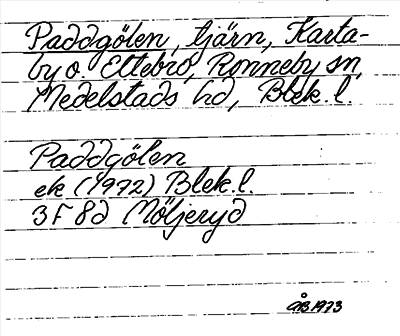 Paddgölen, tjärn, Karta-
by o. Ettebro, Ronneby sn,
Medelstads hd, Blek. l.
Paddgölen
ek (1972) Blek. l.
3F 8d Möljeryd
ÅB 1973